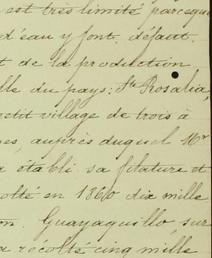 est très limité parceque
d'eau y font défaut.
t de la production
lle du pays: Sta Rosalia,
etit village de trois à
es, auprès duquel Mr
a établi sa filature et
olté en 1860 dix mille
Guayaquillo, sur
a récolté cinq mille